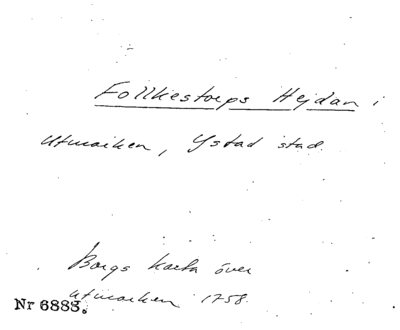 Follkestorps Hejdan i
Utmarken, Ystad stad.
Borgs karta över
utmarken 1758.
Nr 6883.